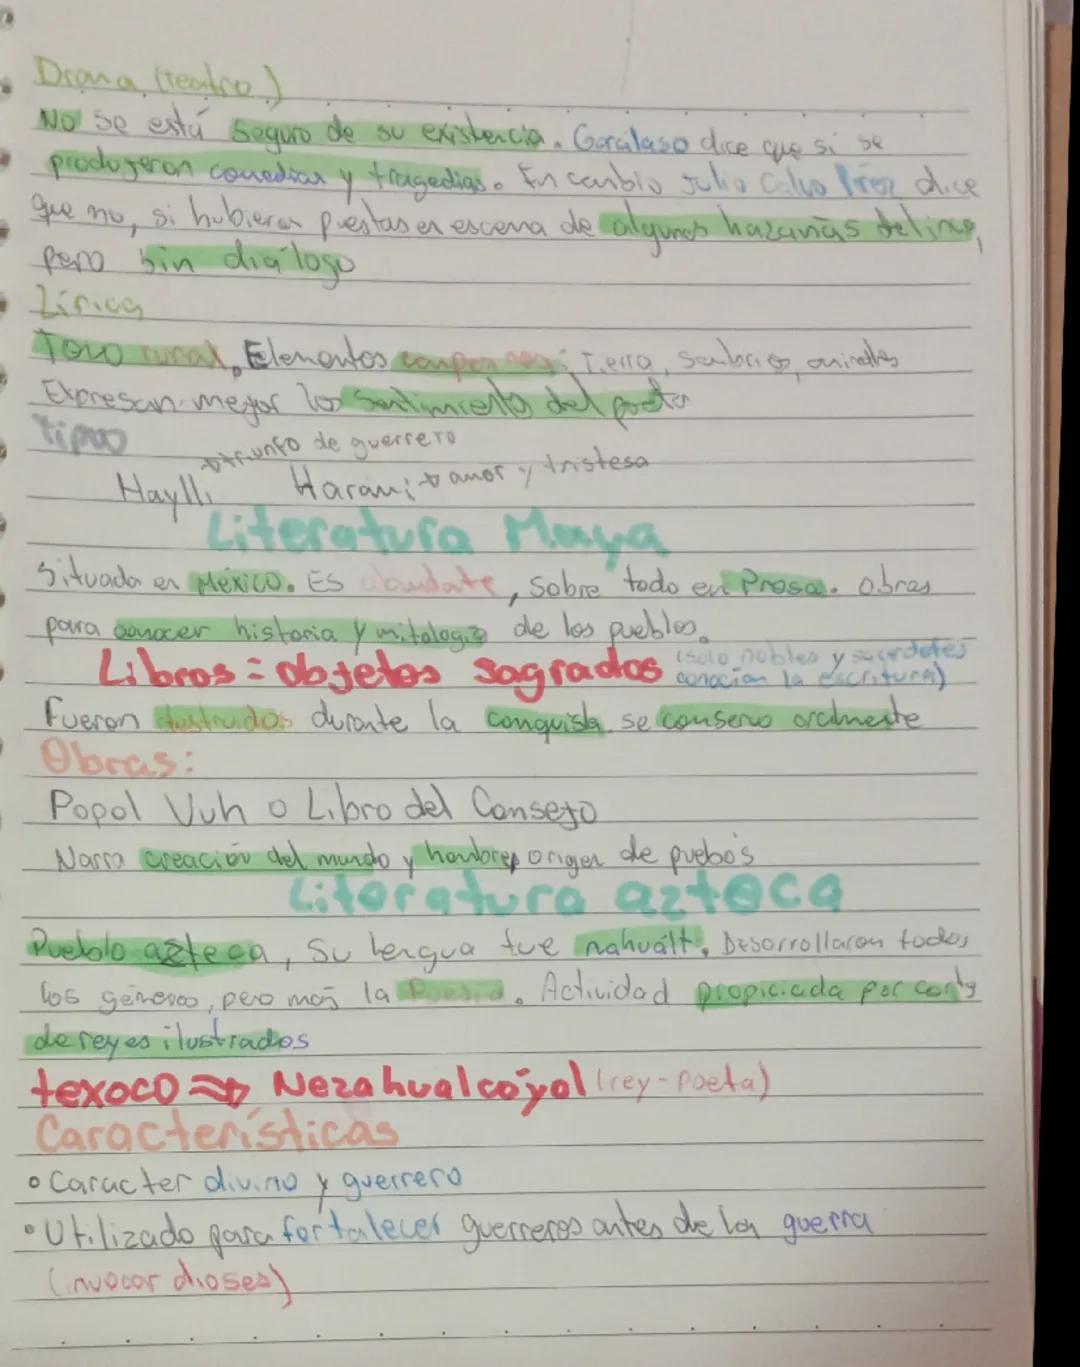 Drama (teatro)
No se está seguro de su existencia. Garcilaso dice que si se
produjeron comedias y tragedias. En cambio Julio Calvo Pérez dice
que no, si hubieran puestas en escena de algunas hazañas del inca,
pero sin diálogo
Lírica
Tono rural. Elementos campesinos: Tierra, sembrios, animales
Expresan mejor los sentimientos del poeta
Tipos
triunfo de guerrero
Haylli Harawi → amor y tristesa
Literatura Maya
Situada en México. Es abundate, sobre todo en Prosa. Obras
para conocer historia y mitologia de los pueblos.
Libros = objetos sagrados (solo nobles y sacerdotes
conocian la escritura)
Fueron destruidos durante la conquista. se conservo oralmente
Obras:
Popol Vuh o Libro del Consejo
Narra creación del mundo y hombres, origen de puebos
Literatura azteca
Pueblo azteca, su lengua fue nahuált. Desarrollaron todos
los géneros, pero más la Poesia. Actividad propiciada por
de reyes ilustrados
texoco ⇒ Nezahualcóyol (rey-poeta)
Características
• Caracter divino y guerrero
• Utilizado para fortalecer guerreros antes de la guerra
(invocar dioses)